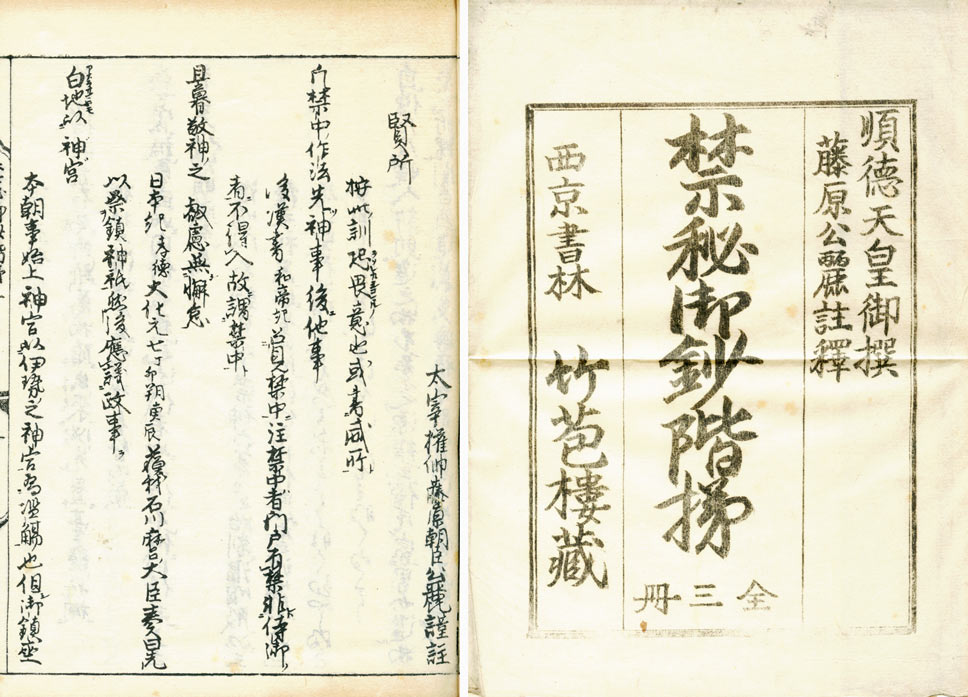 順德天皇御撰
藤原公麗註釋
禁秘御鈔階梯
全三冊
西京書林
竹苞樓藏
太宰權帥藤原朝臣公麗謹註
賢所
按此訓恐畏義也或書威所
凢禁中作法先神事後他事
後漢書和帝紀曰見禁中注禁中者門戸有禁非侍御
者不得入故謂禁中
且暮敬神之 叡慮無懈怠
日本紀孝德大化元七丁卯朔庚辰蘇我石川麿大臣奏曰先
以祭鎮神祇然後應議政事
白地以 神宮
本朝事始上神宮以伊勢之神宮為濫觴也但御鎮坐